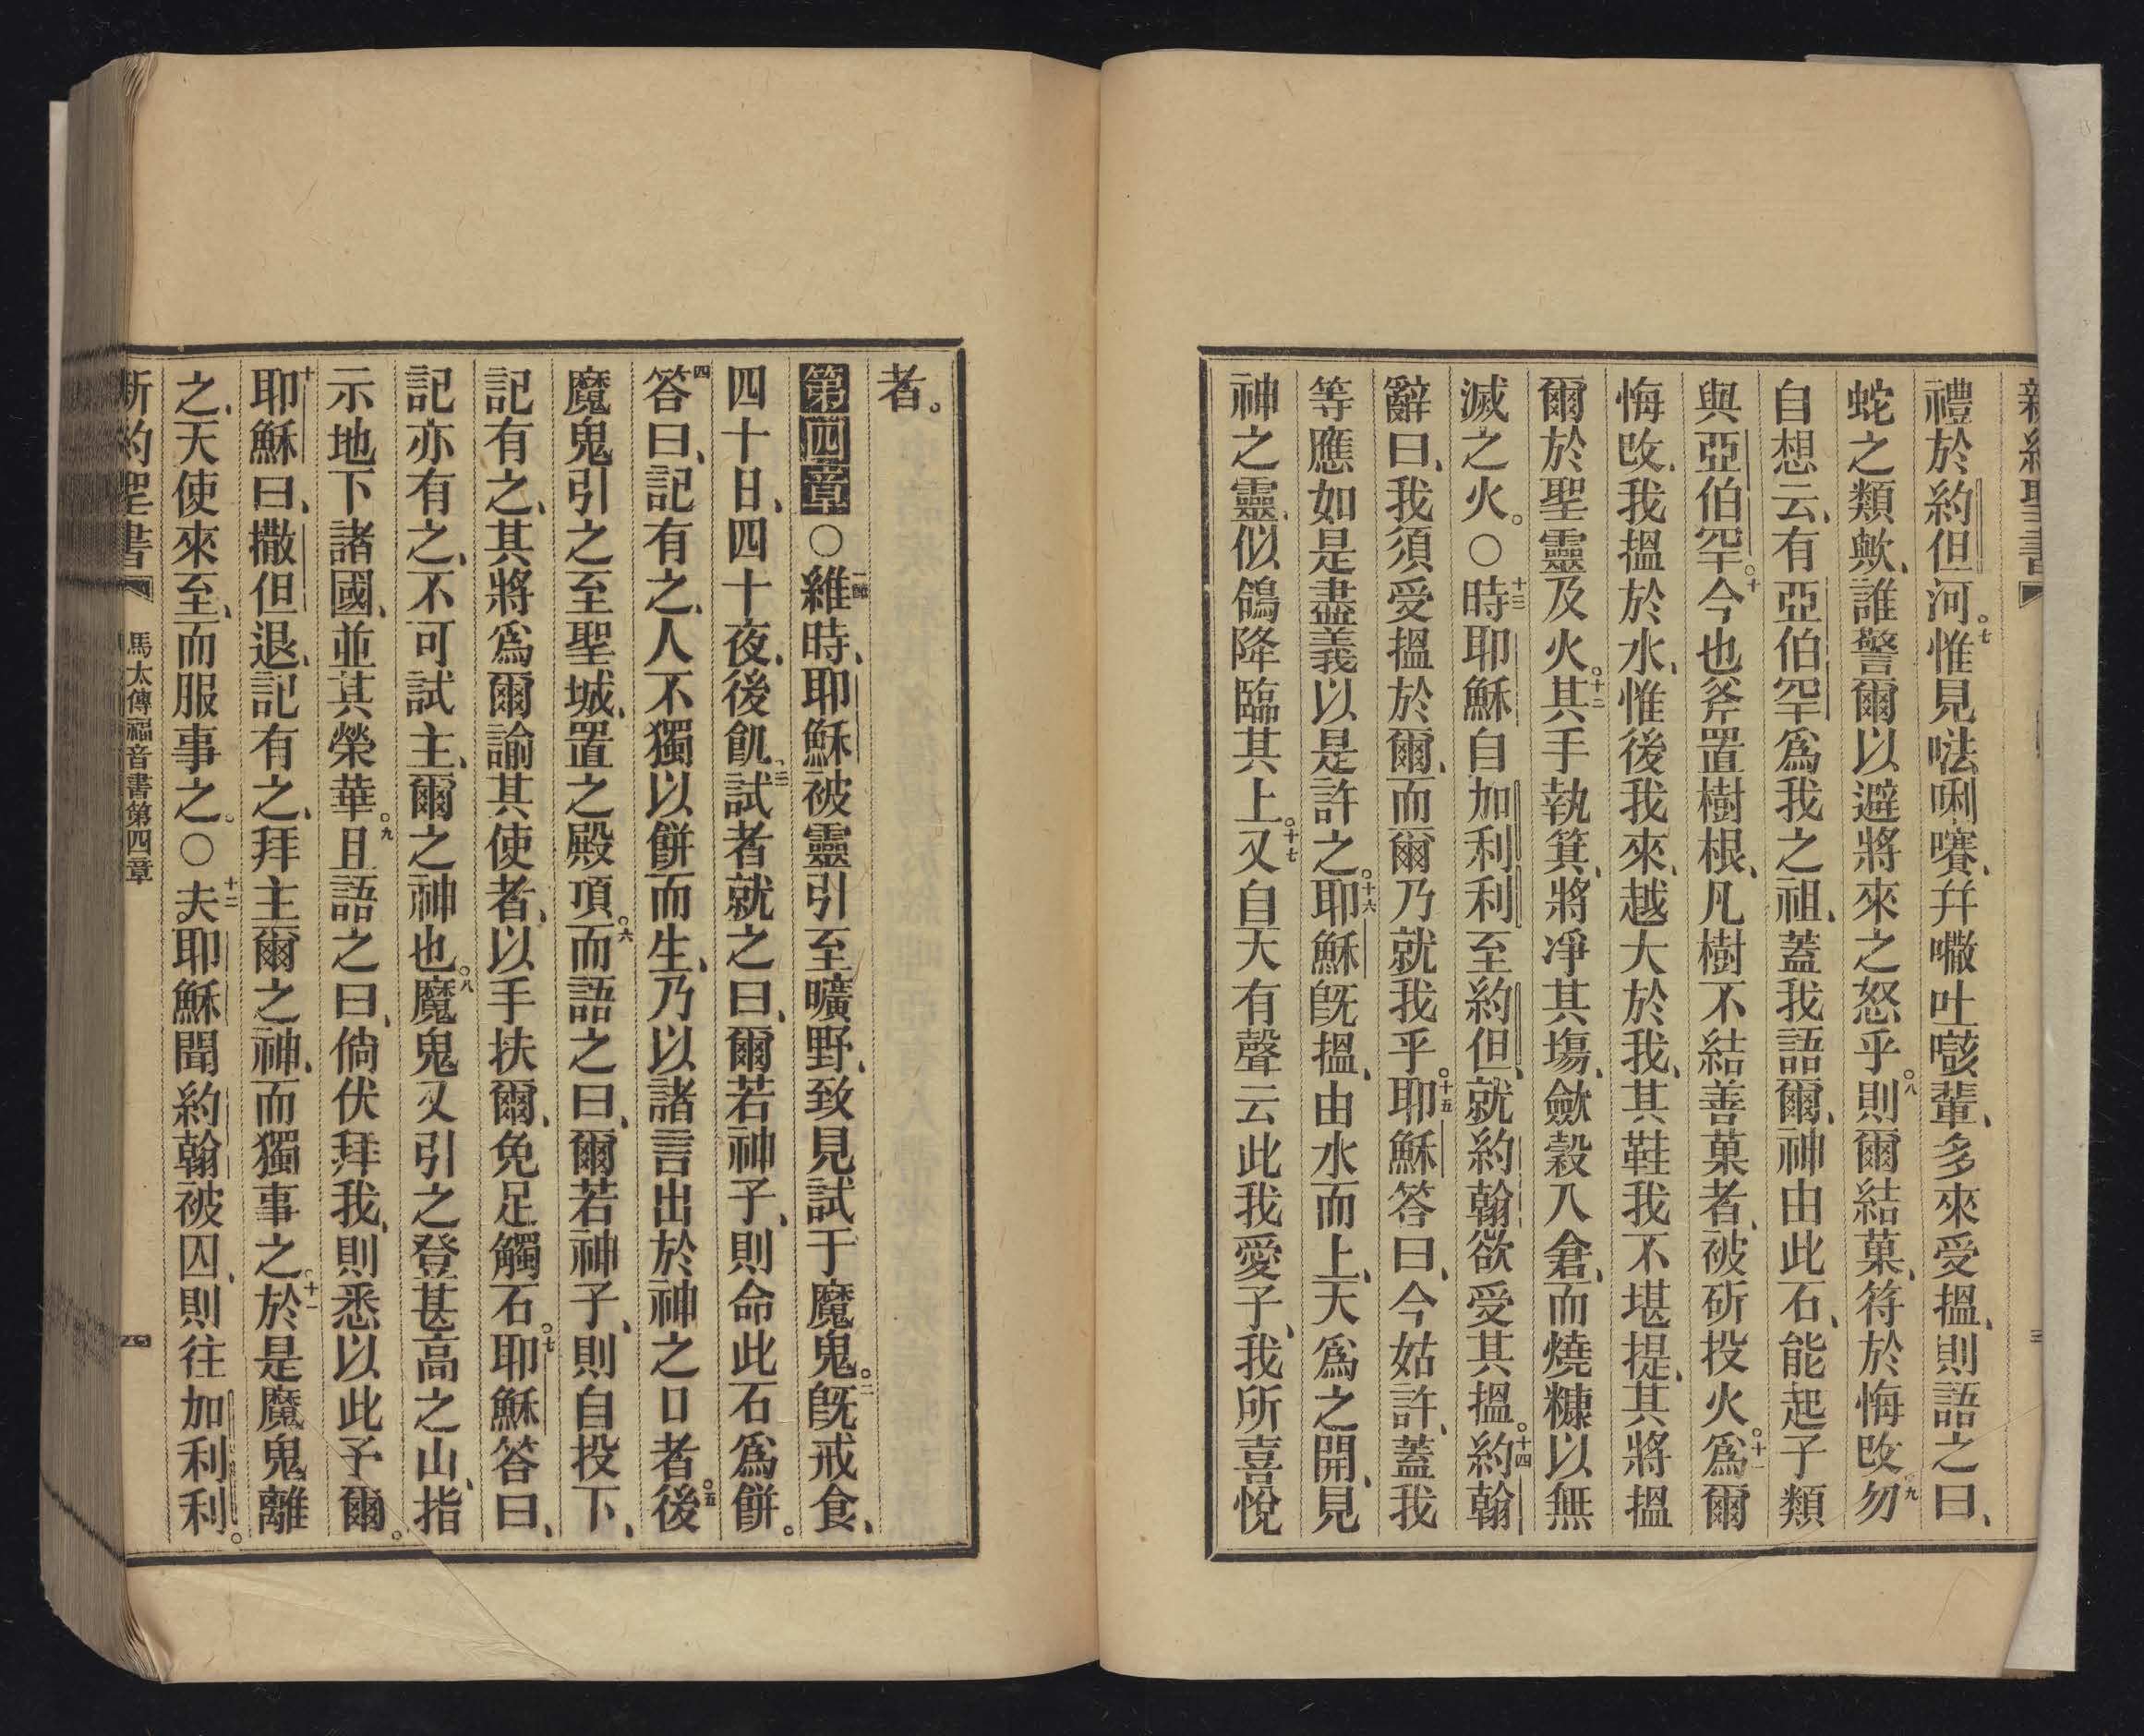 新約聖書
三
禮於約但河。七惟見𠵽唎㘔、幷㘚吐㗒輩、多來受搵、則語之曰、
蛇之類歟、誰警爾以避將來之怒乎。八則爾結菓、符於悔改、九勿
自想云、有亞伯罕爲我之祖、蓋我語爾、神由此石、能起子類
與亞伯罕。十今也斧置樹根、凡樹不結善菓者、被斫投火。十一爲爾
悔改、我搵於水、惟後我來、越大於我、其鞋我不堪提、其將搵
爾於聖靈及火。十二其手執箕、將凈其塲、歛穀入倉、而燒糠以無
滅之火。○十三時耶穌自加利利至約但、就約翰欲受其搵。十四約翰
辭曰、我須受搵於爾、而爾乃就我乎。十五耶穌答曰、今姑許、蓋我
等應如是盡義以是許之。十六耶穌旣搵、由水而上、天爲之開、見
神之靈、似鴿降臨其上。十七又自天有聲云此我愛子、我所喜悅
者。
第四章○一維時、耶穌被靈引至曠野、致見試于魔鬼。二旣戒食、
四十日、四十夜、後飢、三試者就之曰、爾若神子、則命此石爲餅。
四答曰、記有之、人不獨以餅而生、乃以諸言出於神之口者。五後
魔鬼引之至聖城、置之殿項。六而語之曰、爾若神子、則自投下、
記有之、其將爲爾諭其使者、以手扶爾、免足觸石。七耶穌答曰、
記亦有之、不可試主、爾之神也。八魔鬼又引之登甚高之山、指
示地下諸國、並其榮華。九且語之曰、倘伏拜我、則悉以此予爾。
十耶穌曰、撒但退、記有之、拜主爾之神、而獨事之。十一於是魔鬼離
之、天使來至、而服事之。○十二夫耶穌聞約翰被囚、則往加利利。
新約聖書 馬太傳福音書第四章